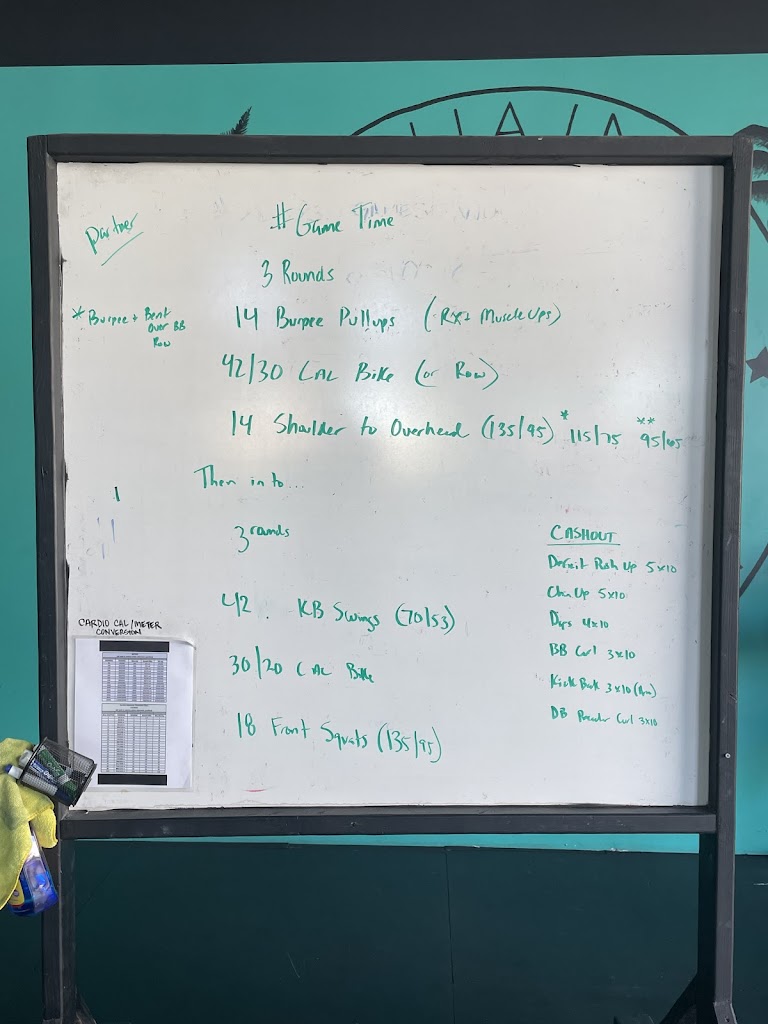 Partner
#Game Time
3 Rounds
* Burpee + Bent Over BB Row
14 Burpee Pullups (RX+ Muscle Ups)
42/30 CAL Bike (or Row)
14 Shoulder to Overhead (135/95) * 115/75 ** 95/65
Then in to...
3 rounds
42 KB Swings (70/53)
30/20 CAL Bike
18 Front Squats (135/95)
CASHOUT
Deficit Push Up 5x10
Chin Up 5x10
Dips 4x10
BB Curl 3x10
Kick Back 3x10 (Arm)
DB Preacher Curl 3x10
CARDIO CAL/METER
CONVERSION